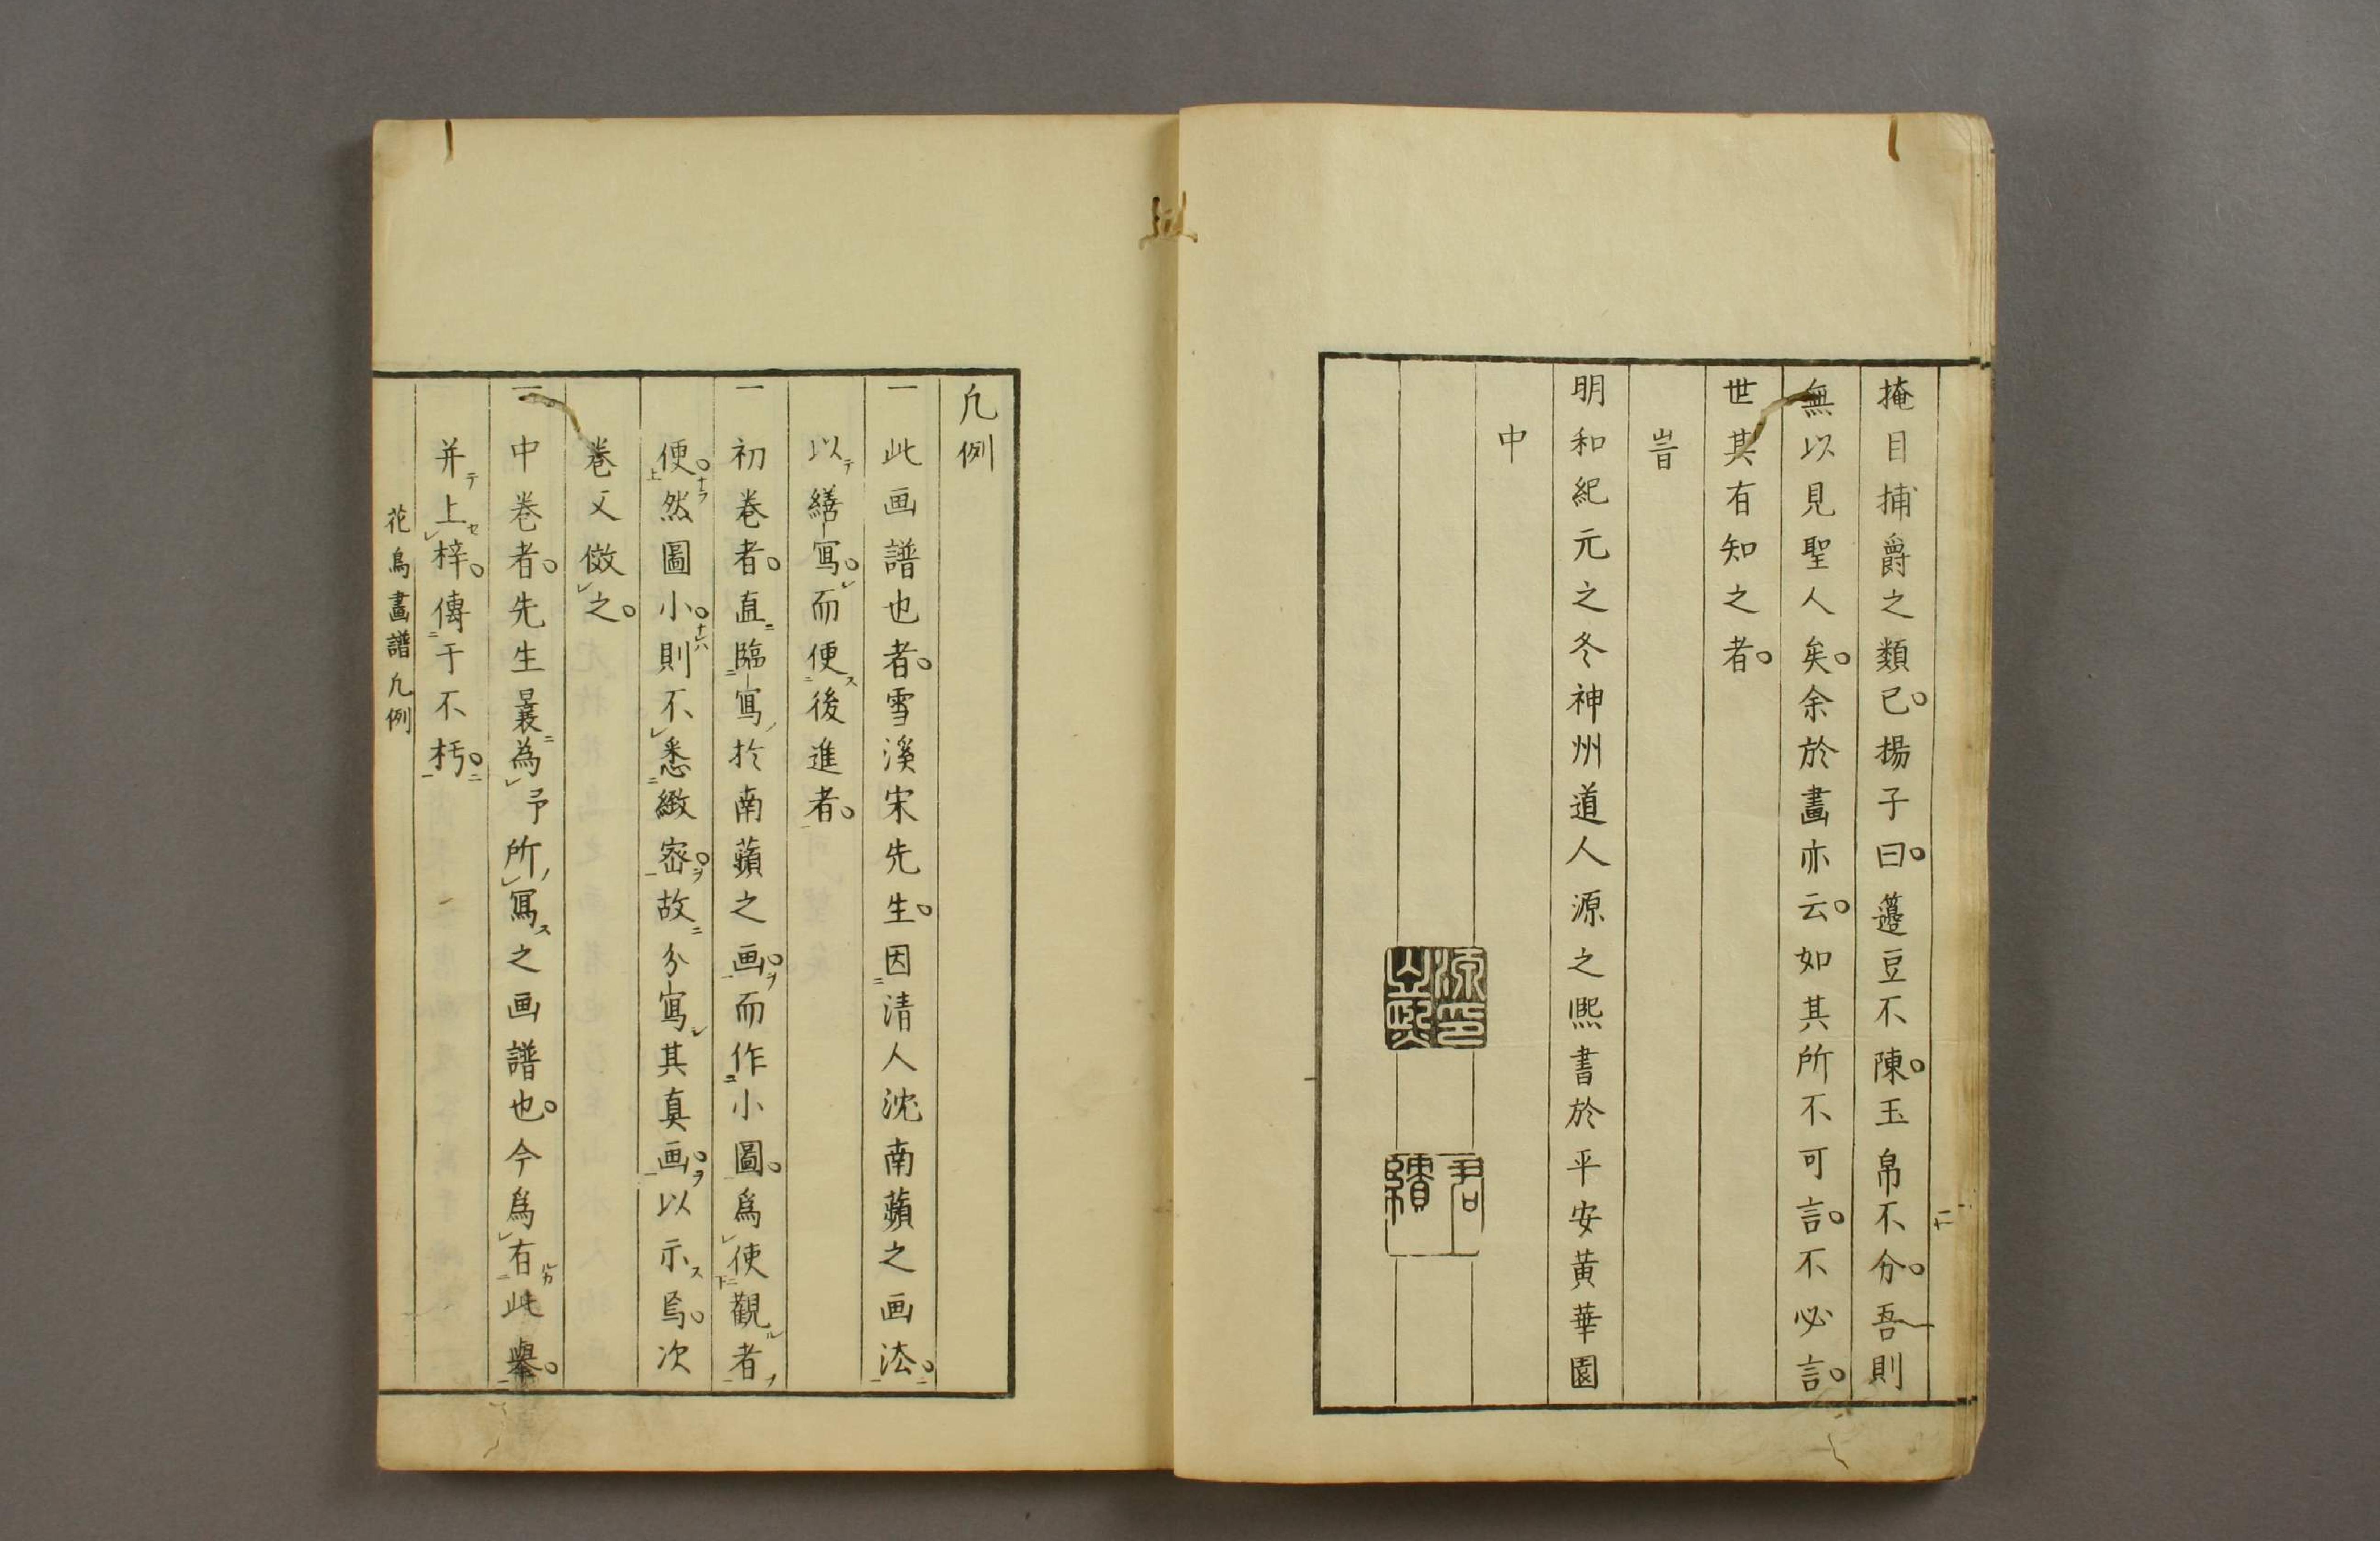 掩目捕爵之類已。揚子曰。籩豆不陳。玉帛不分。吾則
無以見聖人矣。余於畫亦云。如其所不可言。不必言。
世其有知之者。
旹
明和紀元之冬神州道人源之熈書於平安黃華園
中
源之熈印
君績
凢例
一 此画譜也者。雪溪宋先生。因清人沈南蘋之画法。
以繕寫。而便後進者。
一 初卷者。直臨寫於南蘋之画。而作小圖。爲使觀者
便。然圖小。則不悉緻密。故分寫其真画。以示焉。次
卷又倣之。
一 中卷者。先生曩為予所寫之画譜也。今爲有此舉。
并上梓。傳于不朽。
花鳥畫譜凢例